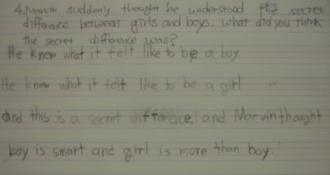 4. Marvin suddenly thought he understood the secret
difference between girls and boys. What did you think
the secret difference was?
He knew what it felt like to be a boy
He knew what it felt like to be a girl
and this is a secret difference and Marvin thought
boy is smart and girl is more than boy.